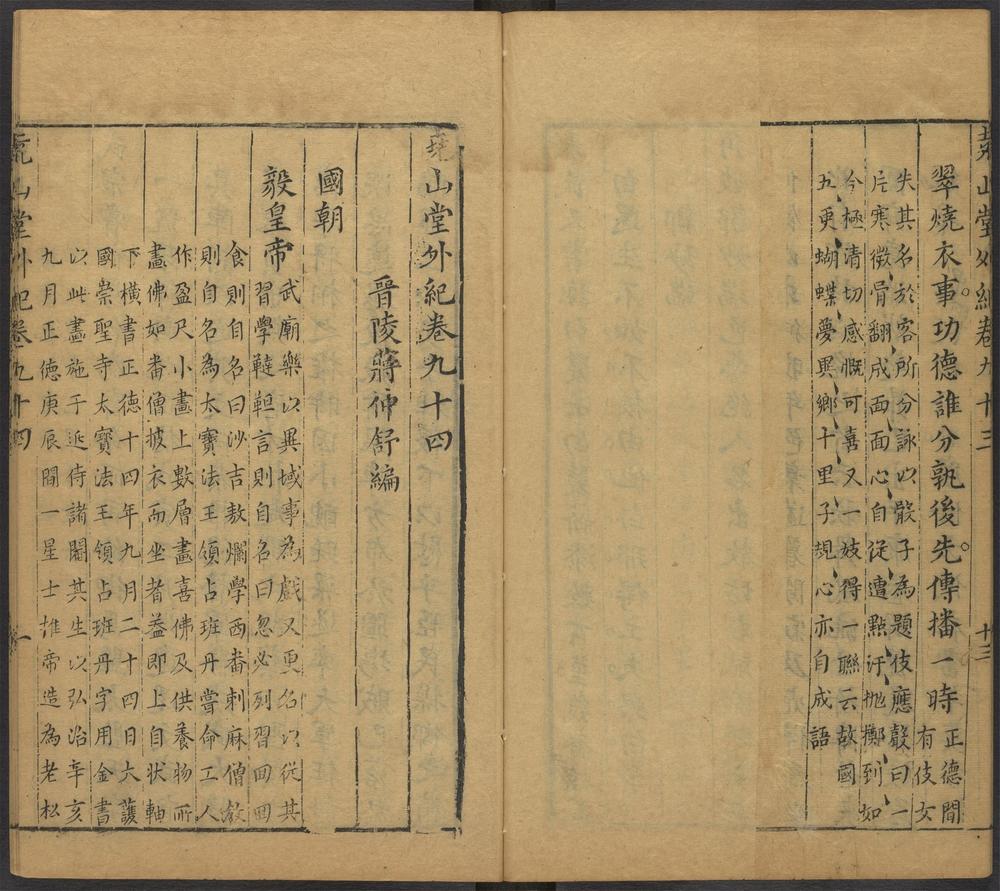 堯山堂外紀卷九十三 十三
翠燒衣事功德誰分孰後先傳播一時正德間有伎女
失其名於客所分詠以骰子為題伎應聲曰一
片寒微骨翻成面面心自從遭點汙拋擲到如
今極清切感慨可喜又一妓得一聯云故國
五更蝴蝶夢異鄉十里子規心亦自成語
堯山堂外紀卷九十四
晉陵蔣仲舒編
國朝
毅皇帝
武廟樂以異域事為戲又更名以從其
習學韃靼言則自名曰忽必列習回回
食則自名曰沙吉敖爛學西番刺麻僧教
則自名為太寶法王領占班丹嘗命工人
作盈尺小畫上數層畫喜佛及供養物所
畫佛如番僧披衣而坐者蓋即上自狀軸
下橫書正德十四年九月二十四日大護
國崇聖寺太寶法王領占班丹字用金書
以此畫施于近侍諸閹其生以弘治辛亥
九月正德庚辰間一星士推帝造為老松
堯山堂外紀卷九十四 一